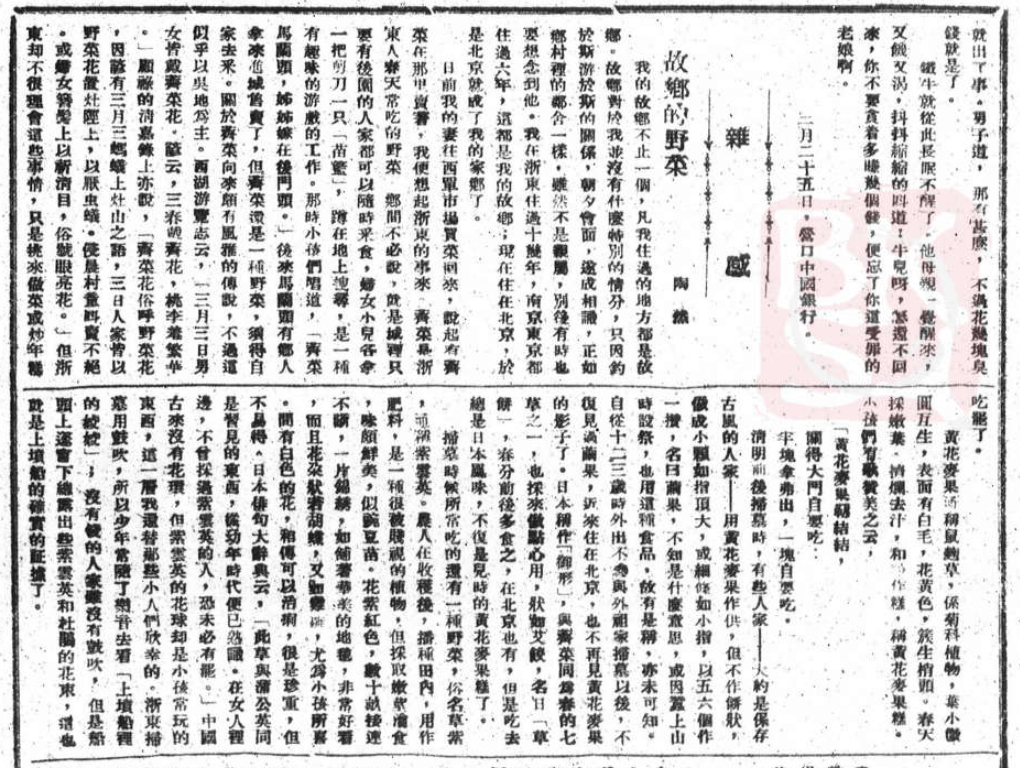 就出了事。男子道，那有甚麼，不過花幾塊臭
錢就是了。
鐵牛就從此長眠不醒了。他母親一覺醒來，
又餓又渴，抖抖縮縮的叫道：牛兒呀，怎還不回
來，你不要貪着多賺幾個錢，便忘了你這受罪的
老娘啊。
二月二十五日，營口中國銀行。
雜感
故鄉的野菜
陶然
我的故鄉不止一個，凡我住過的地方都是故
鄉。故鄉對於我並沒有什麼特別的情分，只因釣
於斯游於斯的關係，朝夕會面，遂成相識，正如
鄉村裡的鄰舍一樣，雖然不是親屬，別後有時也
要想念到他。我在浙東住過十幾年，南京東京都
住過六年，這都是我的故鄉；現在住在北京，於
是北京就成了我的家鄉了。
日前我的妻往西單市場買菜回來，說起有薺
菜在那里賣着，我便想起浙東的事來。薺菜是浙
東人春天常吃的野菜，鄉間不必說，就是城裡只
要有後園的人家都可以隨時采食，婦女小兒各拿
一把剪刀一只「苗籃」，蹲在地上搜尋，是一種
有趣味的游戲的工作。那時小孩們唱道，「薺菜
馬蘭頭，姊姊嫁在後門頭。」後來馬蘭頭有鄉人
拿來進城售賣了，但薺菜還是一種野菜，須得自
家去采。關於薺菜向來頗有風雅的傳說，不過這
似乎以吳地爲主。西湖游覽志云，「三月三日男
女皆戴薺菜花。諺云，三春戴薺花，桃李羞繁華
。」顧祿的清嘉錄上亦說，「薺菜花俗呼野菜花
，因諺有三月三螞蟻上灶山之語，三日人家皆以
野菜花置灶陘上，以厭虫蟻。侵晨村童叫賣不絕
。或婦女簪髻上以祈清目，俗號眼亮花。」但浙
東却不很理會這些事情，只是挑來做菜或炒年糕
吃罷了。
黃花麥果通稱鼠麴草，係菊科植物，葉小微
圓互生，表面有白毛，花黃色，簇生梢頭。春天
採嫩葉，搗爛去汁，和粉作糕，稱黃花麥果糕。
小孩們有歌贊美之云，
「黃花麥果靱結結，
關得大門自要吃：
半塊拿弗出，一塊自要吃。」
清明前後掃墓時，有些人家——大約是保存
古風的人家——用黃花麥果作供，但不作餅狀，
做成小顆如指頂大，或細條如小指，以五六個作
一攢，名曰繭果，不知是什麼意思，或因蠶上山
時設祭，也用這種食品，故有是稱，亦未可知。
自從十二三歲時外出不參與外祖家掃墓以後，不
復見過繭果，近來住在北京，也不再見黃花麥果
的影子了。日本稱作「御形」，與薺菜同爲春的七
草之一，也採來做點心用，狀如艾餃，名曰「草
餅」，春分前後多食之，在北京也有，但是吃去
總是日本風味，不復是兒時的黃花麥果糕了。
掃墓時候所常吃的還有一種野菜，俗名草紫
，通稱紫雲英。農人在收穫後，播種田內，用作
肥料，是一種很被賤視的植物，但採取嫩莖瀹食
，味頗鮮美，似豌豆苗。花紫紅色，數十畝接連
不斷，一片錦綉，如鋪着華美的地毯，非常好看
，而且花朵狀若胡蝶，又如雞雛，尤爲小孩所喜
。間有白色的花，相傳可以治痢，很是珍重，但
不易得。日本俳句大辭典云，「此草與蒲公英同
是習見的東西，從幼年時代便已熟識，在女人裡
邊，不曾採過紫雲英的人，恐未必有罷。」中國
古來沒有花環，但紫雲英的花球却是小孩常玩的
東西，這一層我還替那些小人們欣幸的。浙東掃
墓用鼓吹，所以少年常隨了樂音去看「上墳船裡
的姣姣」；沒有錢的人家雖沒有鼓吹，但是船
頭上篷窗下總露出些紫雲英和杜鵑的花束，這也
就是上墳船的確實的証據了。